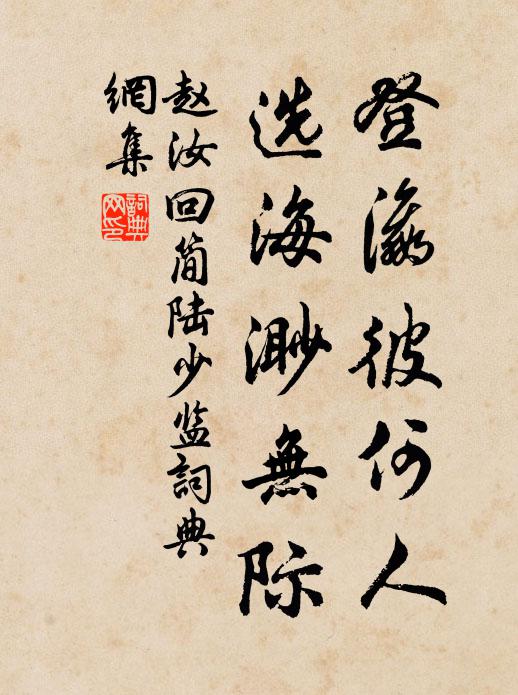 登瀛彼何人
选海渺無际
赵汝回简陆少监詞典
網集
詞典
网印